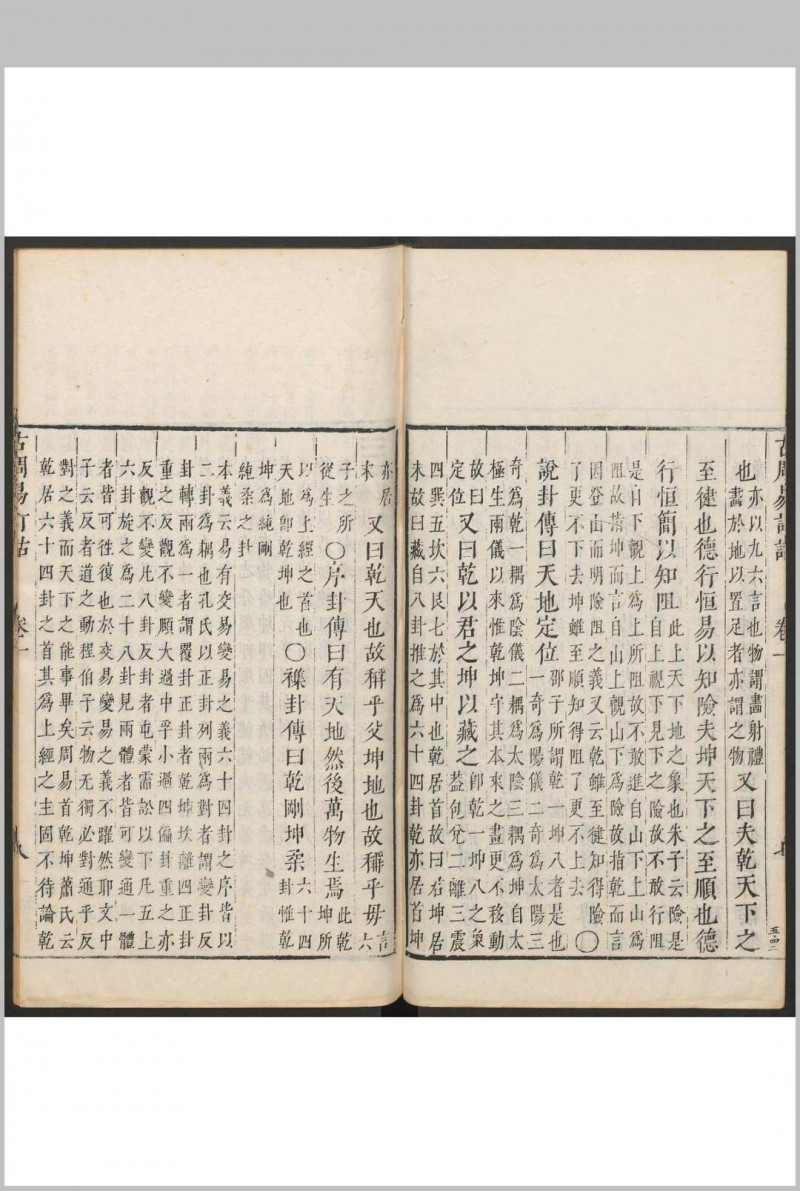 古周易訂詁 卷一
也亦以九六言也物謂畫射禮
畫於地以置足者亦謂之物又曰夫乾天下之
至健也德行恒易以知險夫坤天下之至順也德
行恒簡以知阻此上天下地之象也朱子云險是
自上視下見下之險故不敢行阻
是自下觀上爲上所阻故不敢進自山下上山爲
阻故指坤而言自山上觀山下爲險故指乾而言
因登山而明險阻之義又云乾雖至健知得險
了更不下去坤雖至順知得阻了更不上去〇
說卦傳曰天地定位邵子所謂乾一坤八者是也
一奇爲陽儀二奇爲太陽三
奇爲乾一耦爲陰儀二耦爲太陰三耦爲坤自太
極生兩儀以來惟乾坤字其本來之畫更不移動
故曰
定位又曰乾以君之坤以藏之卽乾一坤八之象
蓋包兌二離三震
四巽五坎六艮七於其中也乾居首故曰君坤居
末故曰藏自八卦推之爲六十四卦乾亦居首坤
亦居
末又曰乾天也故稱乎父坤地也故稱乎毋言
六
子之所
從生〇序卦傳曰有天地然後萬物生焉此乾
坤所
以爲上經之首也〇襍卦傳曰乾剛坤柔六十四
天地卽乾坤也卦惟乾
坤爲純剛
純柔之卦
本義云易有交易變易之義六十四卦之序皆以
二卦爲耦也孔氏以正卦列兩爲對者謂變卦反
卦轉兩爲一者謂覆卦正卦者乾坤坎離四正卦
重之反觀不變頤大過中孚小過四偏卦重之亦
反觀不變凡八卦反卦者屯蒙需訟以下凡五上
六卦旋之爲二十八卦見兩體者皆可變通一體
者皆可往復也於交易變易之義不躍然聊文中
子云反者道之動程伯子云物无獨必對通乎反
對之義而天下之能事畢矣周易首乾坤蕭氏云
乾居六十四卦之首其爲上經之主固不待論乾
古周易訂詁 卷一 八